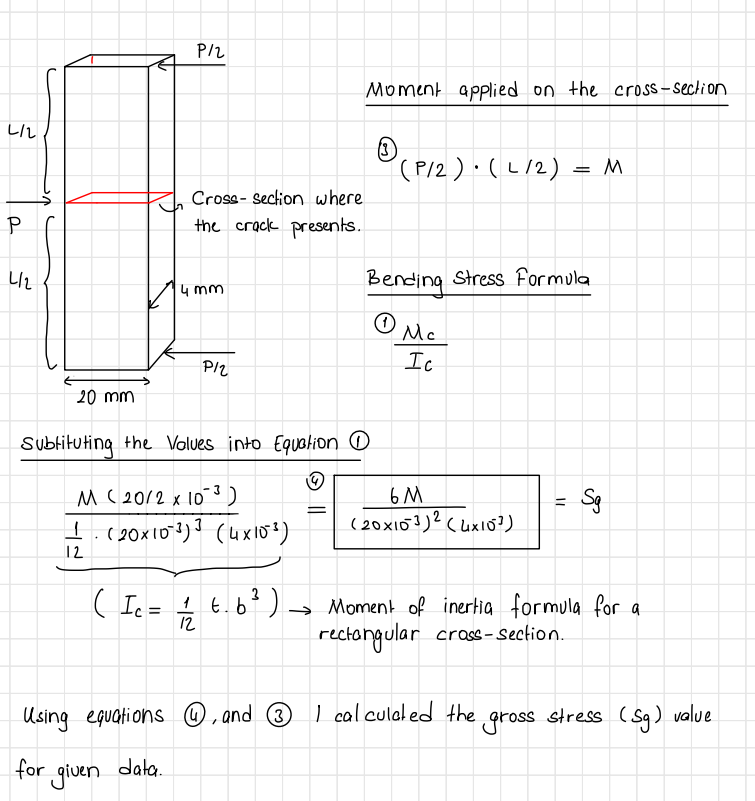 P/2
L/2
P
L/2
Cross-section where
the crack presents.
4 mm
P/2
20 mm
Moment applied on the cross-section
③ (P/2) · (L/2) = M
Bending Stress Formula
① Mc
Ic
Subtituting the Values into Equation ①
M (20/2 x 10⁻³)
1/12 . (20x10⁻³)³ (4x10⁻³)
④ = 6M
(20x10⁻³)² (4x10⁻³)
= Sg
( Ic = 1/12 t. b³ ) → Moment of inertia formula for a
rectangular cross-section.
Using equations ④, and ③ I calculated the gross stress (Sg) value
for given data.